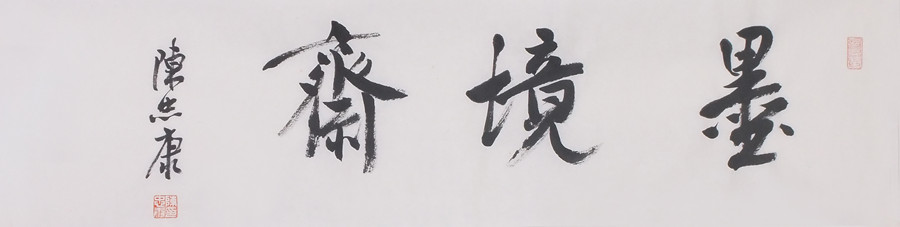 墨境齋
陳忠康